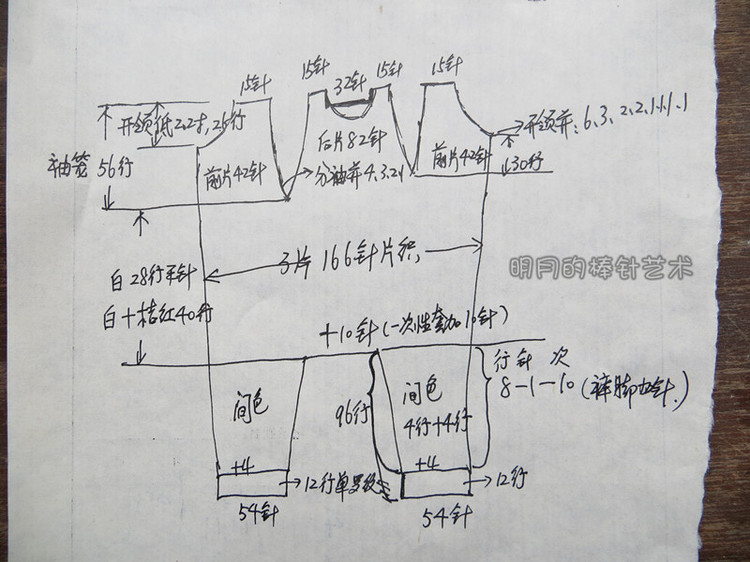 15针 15针 32针 15针 15针
开领低2.2寸,26行
开领并:6.3.2.2.1.1.1.1
袖笼56行
后片82针
前片42针
分袖并4.3.2.1
前片42针
30行
3片166针片织
白28行平针
白+桔红40行
明月的棒针艺术
+10针(一次性套加10针)
行 针 次
8-1-10(裤脚加针.)
间色
96行
间色
4行+4行
+4
+4
12行单罗纹
12行
54针
54针